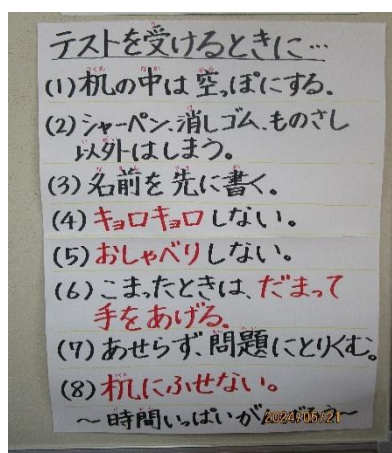 テストを受けるときに…
(1)机の中は空っぽにする.
(2)シャーペン、消しゴム、ものさし
以外はしまう。
(3)名前を先に書く。
(4)キョロキョロしない。
(5)おしゃべりしない。
(6)こまったときは、だまって
手をあげる。
(7)あせらず、問題にとりくむ。
(8)机にふせない。
〜時間いっぱいが
2024/05/21